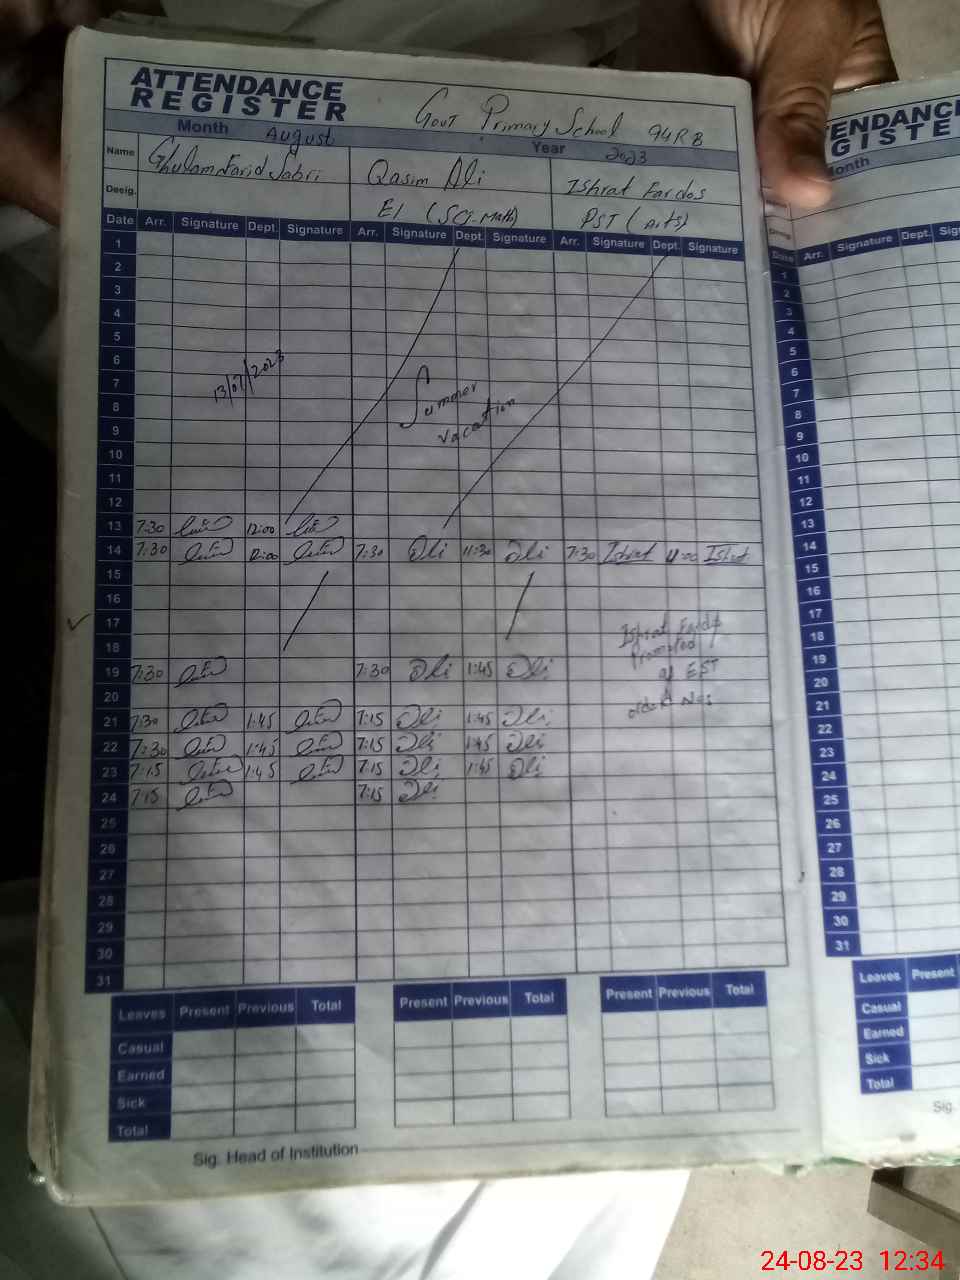 ATTENDANCE
REGISTER
Govt Primary School 94RB
Month August Year 2023
Name Ghulam Farid Sabri Qasim Ali Ishrat Fardos
Desig. PST (Arts)
Date Arr. Signature Dept. Signature Arr. Signature Dept. Signature Arr. Signature Dept. Signature
1
2
3
4
5
6
13/07/2023
7
Summer
8
vacation
9
10
11
12
13 7:30 12:00
14 7:30 12:00 7:30 Ali 11:30 Ali 7:30 Ishrat Ishrat
15
16
17
Ishrat
18
Promoted
19 7:30 7:30 Ali 1:45 Ali
EST
20
21 7:30 1:45 7:15 Ali 1:45 Ali
22 7:30 1:45 7:15 Ali 1:45 Ali
23 7:15 1:45 7:15 Ali 1:45 Ali
24 7:15 7:15 Ali
25
26
27
28
29
30
31
Leaves Present Previous Total Present Previous Total Present Previous Total
Casual
Earned
Sick
Total
Sig. Head of Institution
ENDANC
GISTE
Month
Desig
Date Arr. Signature Dept. Sig
1
2
3
4
5
6
7
8
9
10
11
12
13
14
15
16
17
18
19
20
21
22
23
24
25
26
27
28
29
30
31
Leaves Present
Casual
Earned
Sick
Total
Sig.
24-08-23 12:34